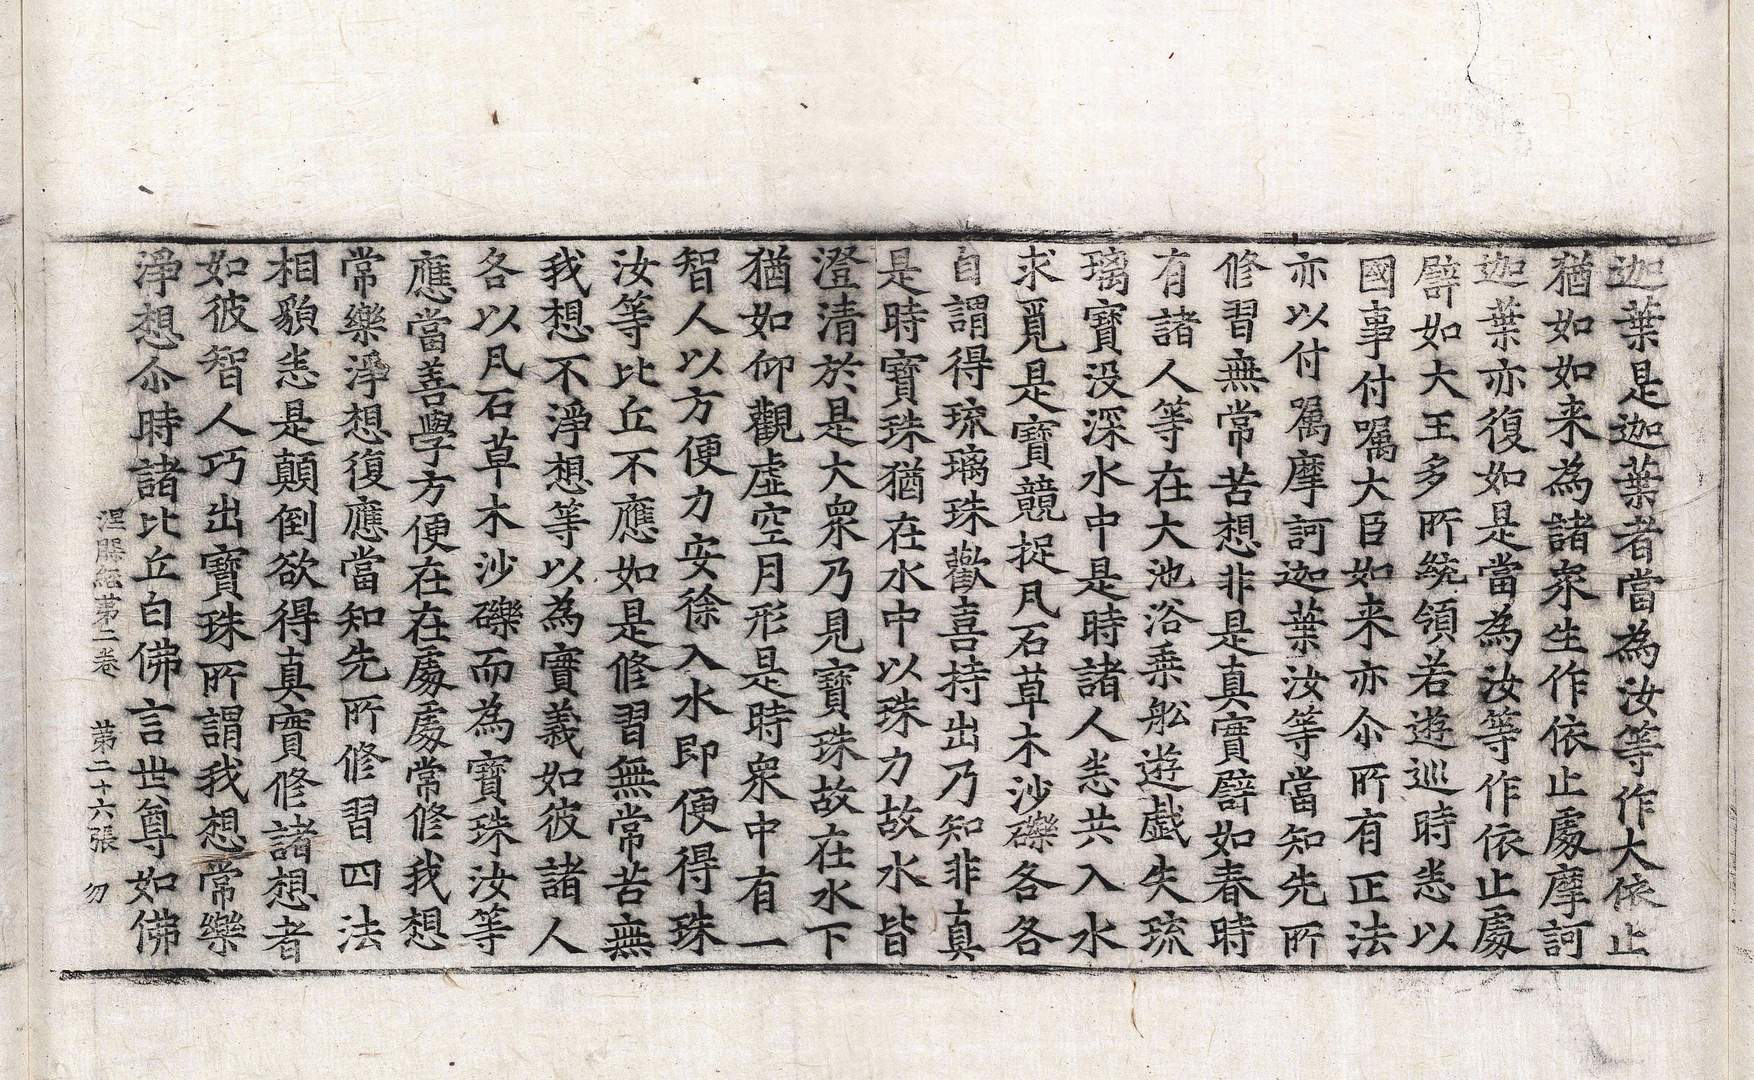 迦葉是迦葉者當為汝等作大依止
猶如如来為諸衆生作依止處摩訶
迦葉亦復如是當為汝等作依止處
譬如大王多所統領若遊巡時悉以
國事付囑大臣如来亦尒所有正法
亦以付囑摩訶迦葉汝等當知先所
修習無常苦想非是真實譬如春時
有諸人等在大池浴乗舩遊戲失琉
璃寶没深水中是時諸人悉共入水
求覓是寶競捉凡石草木沙礫各各
自謂得琉璃珠歡喜持出乃知非真
是時寶珠猶在水中以珠力故水皆
澄清於是大衆乃見寶珠故在水下
猶如仰觀虛空月形是時衆中有一
智人以方便力安徐入水即便得珠
汝等比丘不應如是修習無常苦無
我想不淨想等以為實義如彼諸人
各以凡石草木沙礫而為寶珠汝等
應當善學方便在在處處常修我想
常樂淨想復應當知先所修習四法
相貌悉是顛倒欲得真實修諸想者
如彼智人巧出寶珠所謂我想常樂
淨想尒時諸比丘白佛言世尊如佛
涅槃經第二卷 第二十六張 勿